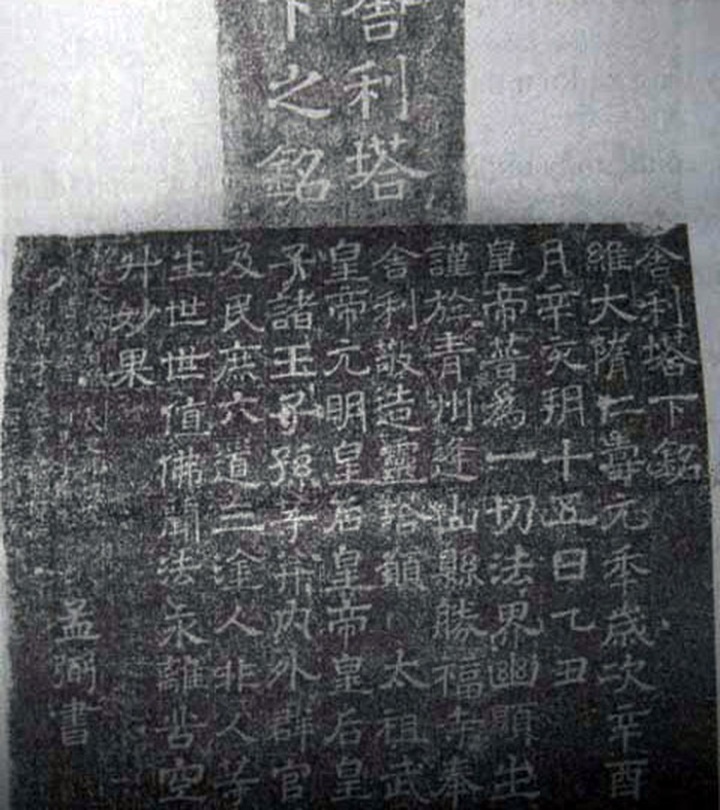 舍利塔
下之銘
舍利塔下銘
維大隋仁壽元年歲次辛酉
月辛亥朔十五日乙丑
皇帝普為一切法界幽顯生
謹於青州逄山縣勝福寺奉
舍利敬造靈塔鎮 太祖武
皇帝元明皇后皇帝皇后皇
子諸王子孫等并內外群官
及民庶六道三塗人非人等
生世世值佛聞法永離苦空
升妙果
孟弼書